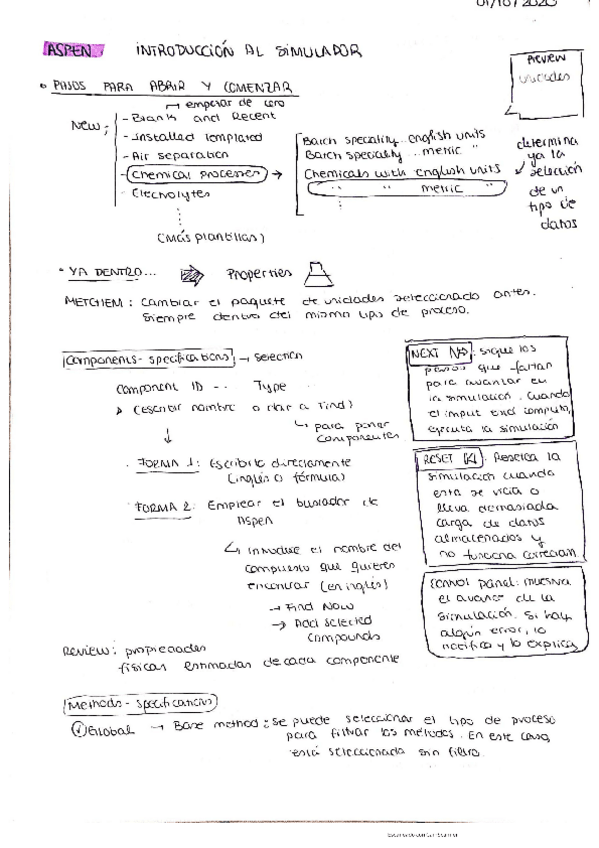 01/10/2020
ASPEN. INTRODUCCIÓN AL SIMULADOR
• PASOS PARA ABRIR Y COMENZAR
→ empezar de cero
New; - Blank and Recent
- Installed templated
- Air separation
- Chemical processes →
- Electrolytes
(Más plantillas)
Batch speciality.. english units
Batch speciality.. metric "
Chemicals with english units
" " metric "
PREVIEW
unidades
determina
ya la
selección
de un
tipo de
datos
• YA DENTRO... Properties
METCHEM: Cambiar el paquete de unidades seleccionado antes.
Siempre dentro del mismo tipo de proceso.
Components - specifications → Selection
Component ID -- Type
(escribir nombre o dar a Find)
↳ para poner
componentes
↓
• FORMA 1: Escribirlo directamente
(inglés o fórmula)
FORMA 2: Emplear el buscador de
Aspen
↳ Introduce el nombre del
compuesto que quieres
encontrar (en inglés)
→ Find Now
→ Add selected
compounds
Review: propiedades
físicas estimadas de cada componente
NEXT N> : sigue los
pasos que faltan
para avanzar en
la simulación. Cuando
el input está completo,
ejecuta la simulación
RESET |◁ : Resetea la
simulación cuando
esta se vicia o
lleva demasiada
carga de datos
almacenados y
no funciona correctam.
Control panel: muestra
el avance de la
simulación. Si hay
algún error, lo
notifica y lo explica
Methods - specifications
① Global → Base method: Se puede seleccionar el tipo de proceso
para filtrar los métodos. En este caso,
está seleccionada sin filtro.
Escaneado con CamScanner